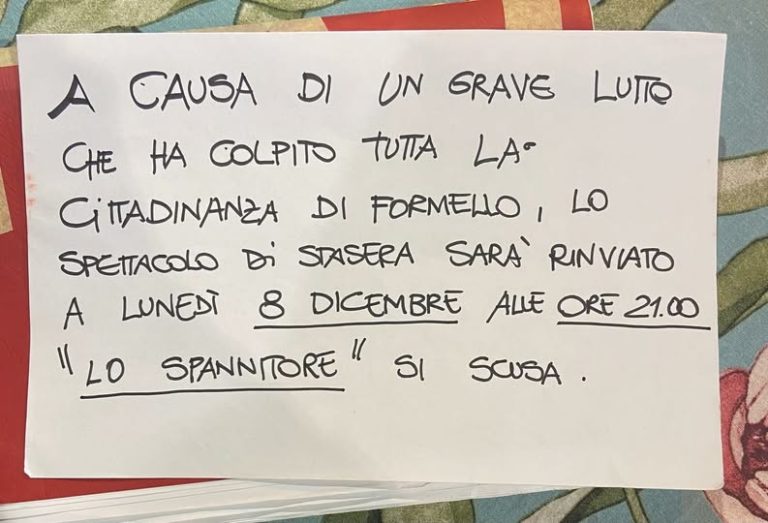 A CAUSA DI UN GRAVE LUTTO
CHE HA COLPITO TUTTA LA
CITTADINANZA DI FORMELLO, LO
SPETTACOLO DI STASERA SARÀ RINVIATO
A LUNEDÌ 8 DICEMBRE ALLE ORE 21.00
"LO SPANNITORE" SI SCUSA.